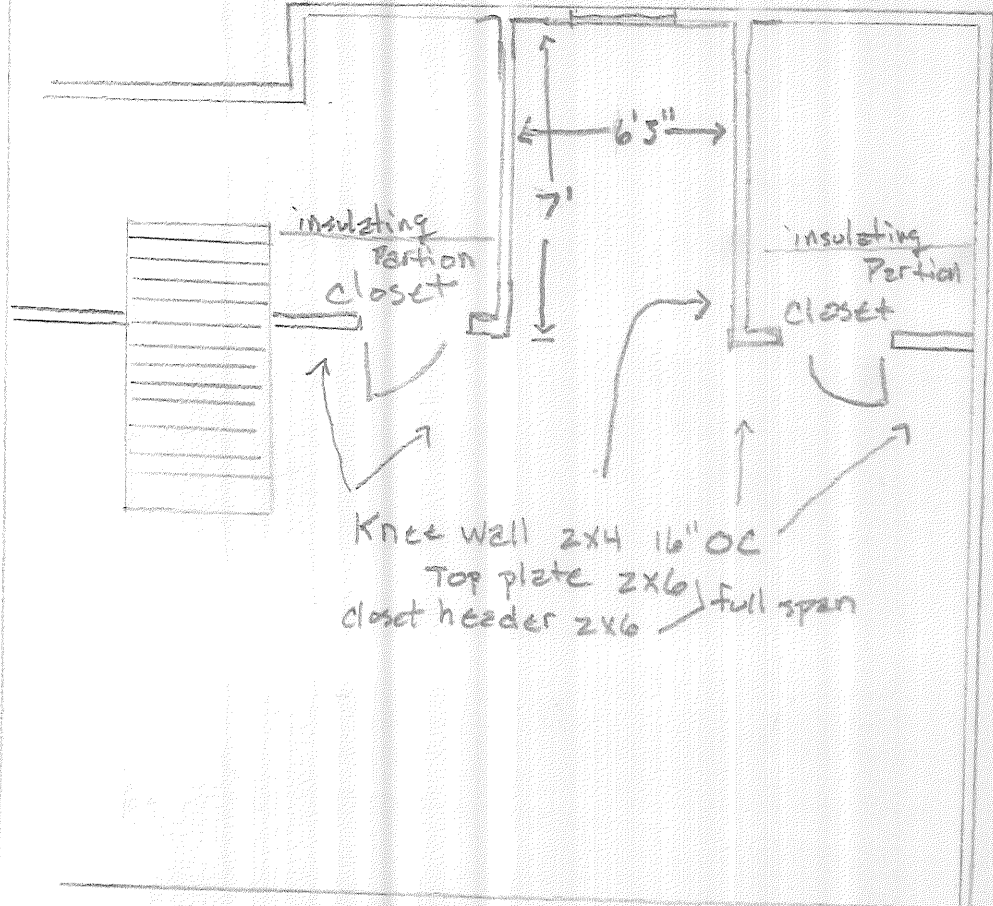 6'5"
7'
insulating
Partion
closet
insulating
Partion
closet
Knee wall 2x4 16" OC
Top plate 2x6
closet header 2x6
full span